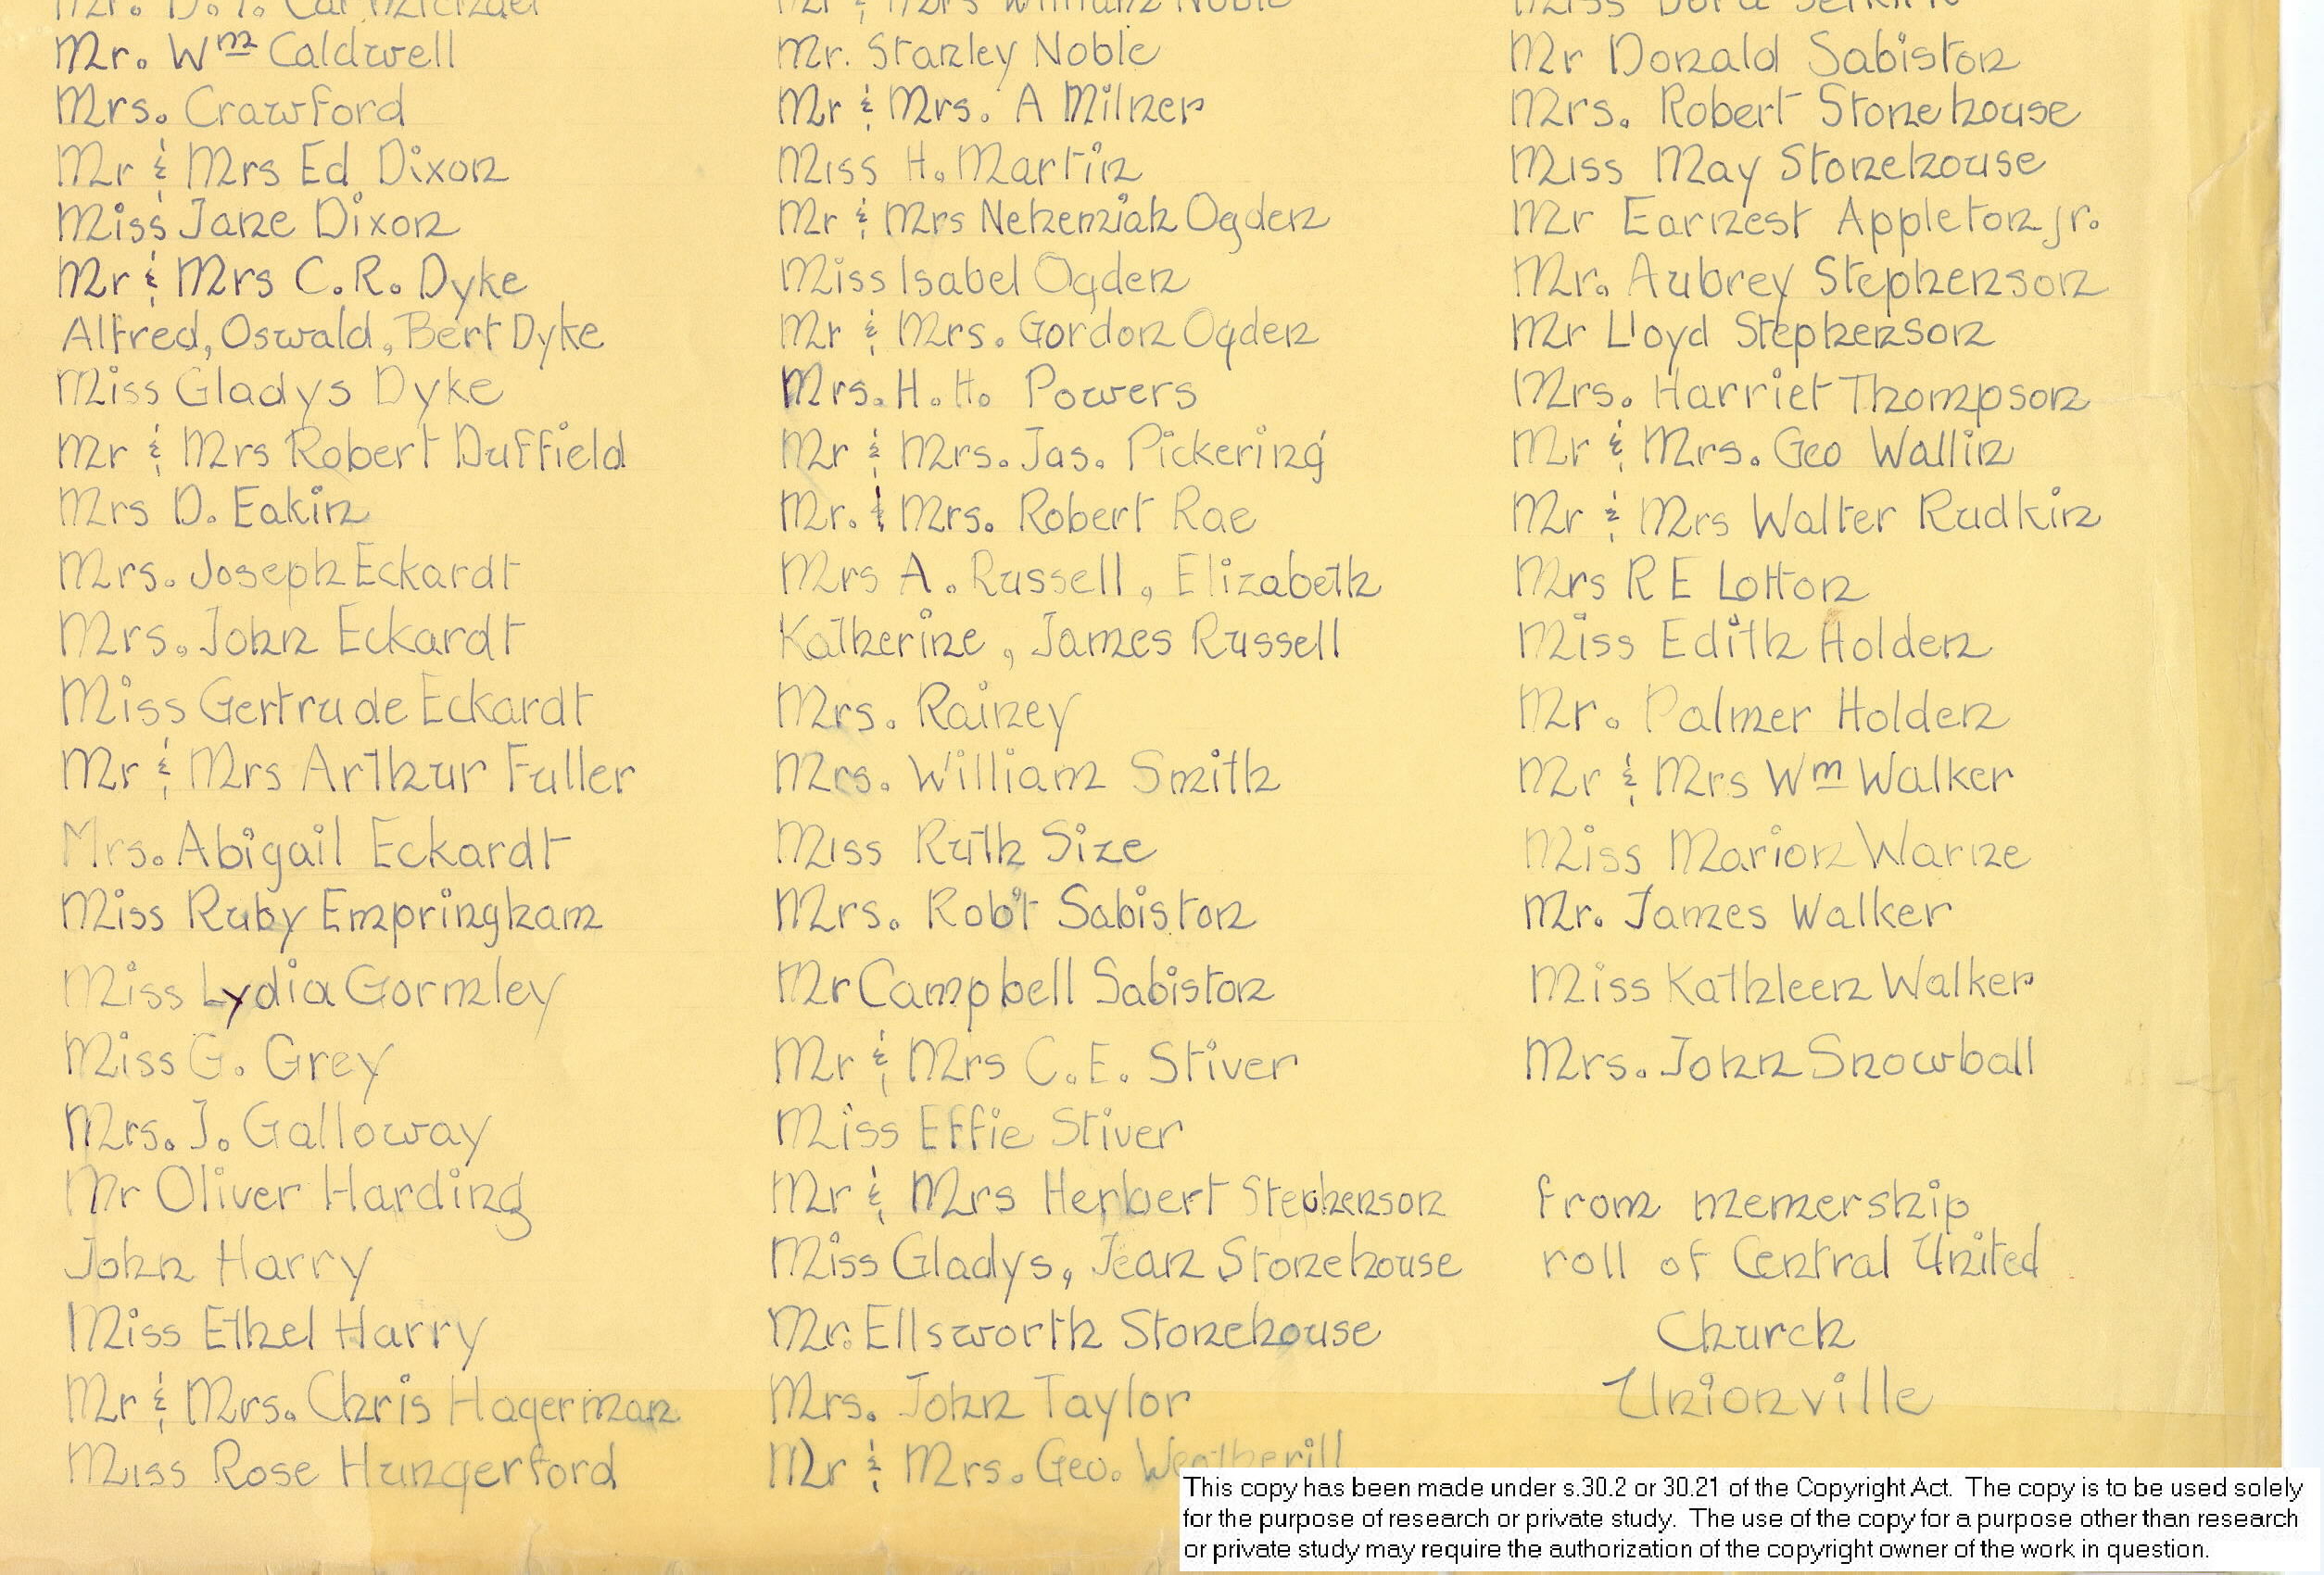 Mr. Wm Caldwell
Mrs. Crawford
Mr & Mrs Ed. Dixon
Miss Jane Dixon
Mr & Mrs C.R. Dyke
Alfred, Oswald, Bert Dyke
Miss Gladys Dyke
Mr & Mrs Robert Duffield
Mrs D. Eakin
Mrs. Joseph Eckardt
Mrs. John Eckardt
Miss Gertrude Eckardt
Mr & Mrs Arthur Fuller
Mrs. Abigail Eckardt
Miss Ruby Empringham
Miss Lydia Gormley
Miss G. Grey
Mrs. J. Galloway
Mr Oliver Harding
John Harry
Miss Ethel Harry
Mr & Mrs. Chris Hagerman
Miss Rose Hungerford
Mr & Mrs William Noble
Mr. Stanley Noble
Mr & Mrs. A Milner
Miss H. Martin
Mr & Mrs Nehemiah Ogden
Miss Isabel Ogden
Mr & Mrs. Gordon Ogden
Mrs. H. H. Powers
Mr & Mrs. Jas. Pickering
Mr. & Mrs. Robert Rae
Mrs A. Russell, Elizabeth
Katherine, James Russell
Mrs. Rainey
Mrs. William Smith
Miss Ruth Size
Mrs. Rob't Sabiston
Mr Campbell Sabiston
Mr & Mrs C.E. Stiver
Miss Effie Stiver
Mr & Mrs Herbert Stephenson
Miss Gladys, Jean Stonehouse
Mr. Ellsworth Stonehouse
Mrs. John Taylor
Mr & Mrs. Geo. Weatherill
Mr Donald Sabiston
Mrs. Robert Stonehouse
Miss May Stonehouse
Mr Earnest Appleton jr.
Mr. Aubrey Stephenson
Mr Lloyd Stephenson
Mrs. Harriet Thompson
Mr & Mrs. Geo Wallin
Mr & Mrs Walter Rudkin
Mrs R E Lotton
Miss Edith Holden
Mr. Palmer Holden
Mr & Mrs Wm Walker
Miss Marion Warne
Mr. James Walker
Miss Kathleen Walker
Mrs. John Snowball
from memership
roll of Central United
Church
Unionville
This copy has been made under s.30.2 or 30.21 of the Copyright Act. The copy is to be used solely
for the purpose of research or private study. The use of the copy for a purpose other than research
or private study may require the authorization of the copyright owner of the work in question.